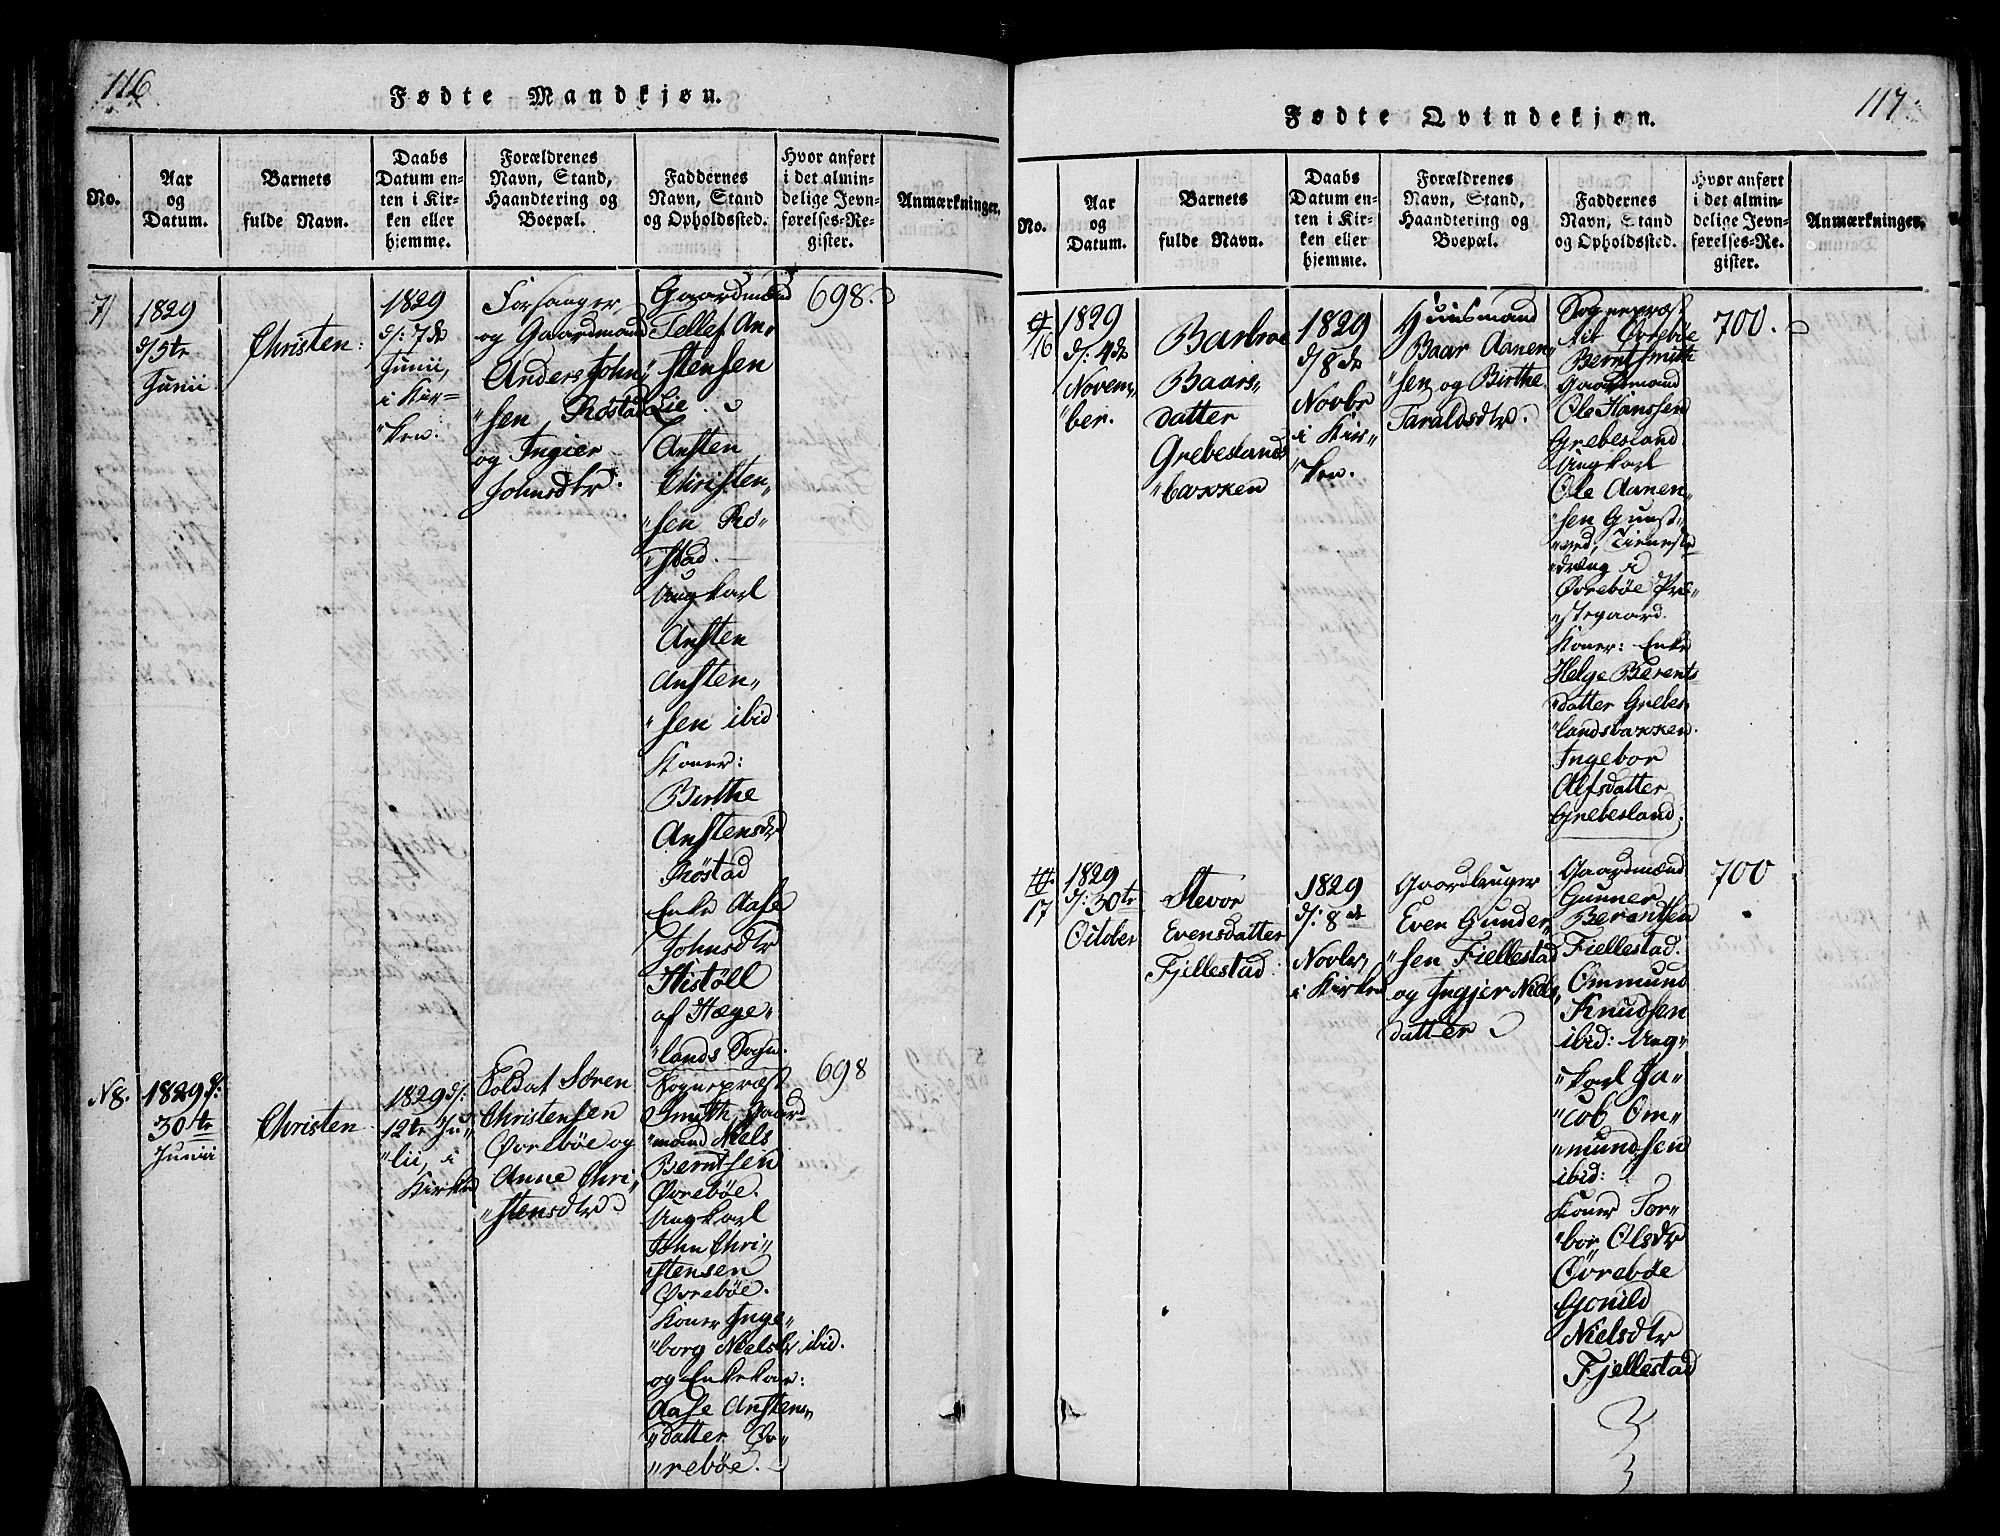 116
Fødte Mandkjøn.
No.
Aar
og
Datum.
Barnets
fulde Navn.
Daabs
Datum en-
ten i Kir-
ken eller
hjemme.
Forældrenes
Navn, Stand,
Haandtering og
Boepæl.
Faddernes
Navn, Stand
og Opholdssted.
Hvor anført
i det almin-
delige Jevn-
førelses-Re-
gister.
Anmærkninger.
7)
1829
d/5te
Junii
Christen.
1829
d/: 7de
Junii,
i Kir=
"ken.
Forsanger
og Gaardmand
Anders John,
"sen Røstad
og Ingier
Johnsdtr.
Gaardmænd
Tellef An,
"stensen
Lie.
Ansten
Christen,
"sen Rø-
"stad.
Ungkarl
Ansten
Ansten,
"sen ibid
Koner:
Birthe
Anstensdtr
Røstad
Enke Aase
Johnsdtr
Histöll
af Hæge,
"lands Sogn.
698.
N8.
1829 d:
30te
Junii
Christen
1829 d/:
12te Ju,
"lii, i
Kirken
Soldat Sören
Christensen
Øvrebøe og
Anne Chri,
"stensdtr
Sognepræst
Smith, Gaard-
"mand Niels
Berntsen
Øvrebøe.
Ungkarl
John Chri,
"stensen
Øvrebøe.
Koner Inge-
"borg Nielsdtr ibid.
og Enkekone:
Aase Anstens,
"datter Øv-
"rebøe.
698
117.
Fødte Qvindekjøn.
No.
Aar
og
Datum.
Barnets
fulde Navn.
Daabs
Datum en-
ten i Kir-
ken eller
hjemme.
Forældrenes
Navn, Stand,
Haandtering og
Boepæl.
Faddernes
Navn, Stand
og Opholdssted.
Hvor anført
i det almin-
delige Jevn-
førelses-Re-
gister.
Anmærkninger.
16
1829
d/: 4de
Novem,
"ber.
Barbroe
Baars,
datter
Grebeslands
"bakken
1829
d/8de
Novbr
i Kir,
"ken.
Huusmand
Baar Aanen,
"sen og Birthe
Taraldsdtr.
Sognepræst
til Øvrebøe
Bernt Smith
Gaardmand
Ole Hanssen
Grebesland
Ungkarl
Ole Aanen,
"sen Gunst,
"ved, Tieneste
"dreng i
Øvrebøe Præ,
"stegaard.
Koner: Enke
Helge Berents
"datter Grebes,
"landsbakken.
Ingebor
Alfsdatter
Grebesland.
700.
17
1829
d/: 30te
October
Stevor
Evensdatter
Fjellestad
1829
d/: 8de
Novbr,
i Kirken
Gaardbruger
Even Gunder,
"sen Fiellestad
og Ingjer Niels,
datter
Gaardmænd
Gunner
Berantsen
Fiellestad.
Ommund
Knudsen
ibid: Ung,
"karl Ja-
"cob Om-
"mundsen
ibid:
Koner Tor-
"bor Olsdtr
Øvrebøe
Gonild
Nielsdtr
Fjellestad
700